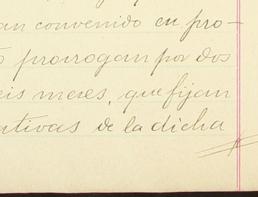 an convenido en pro-
o prorrogan por dos
eis meses, que fijan
ativas de la dicha